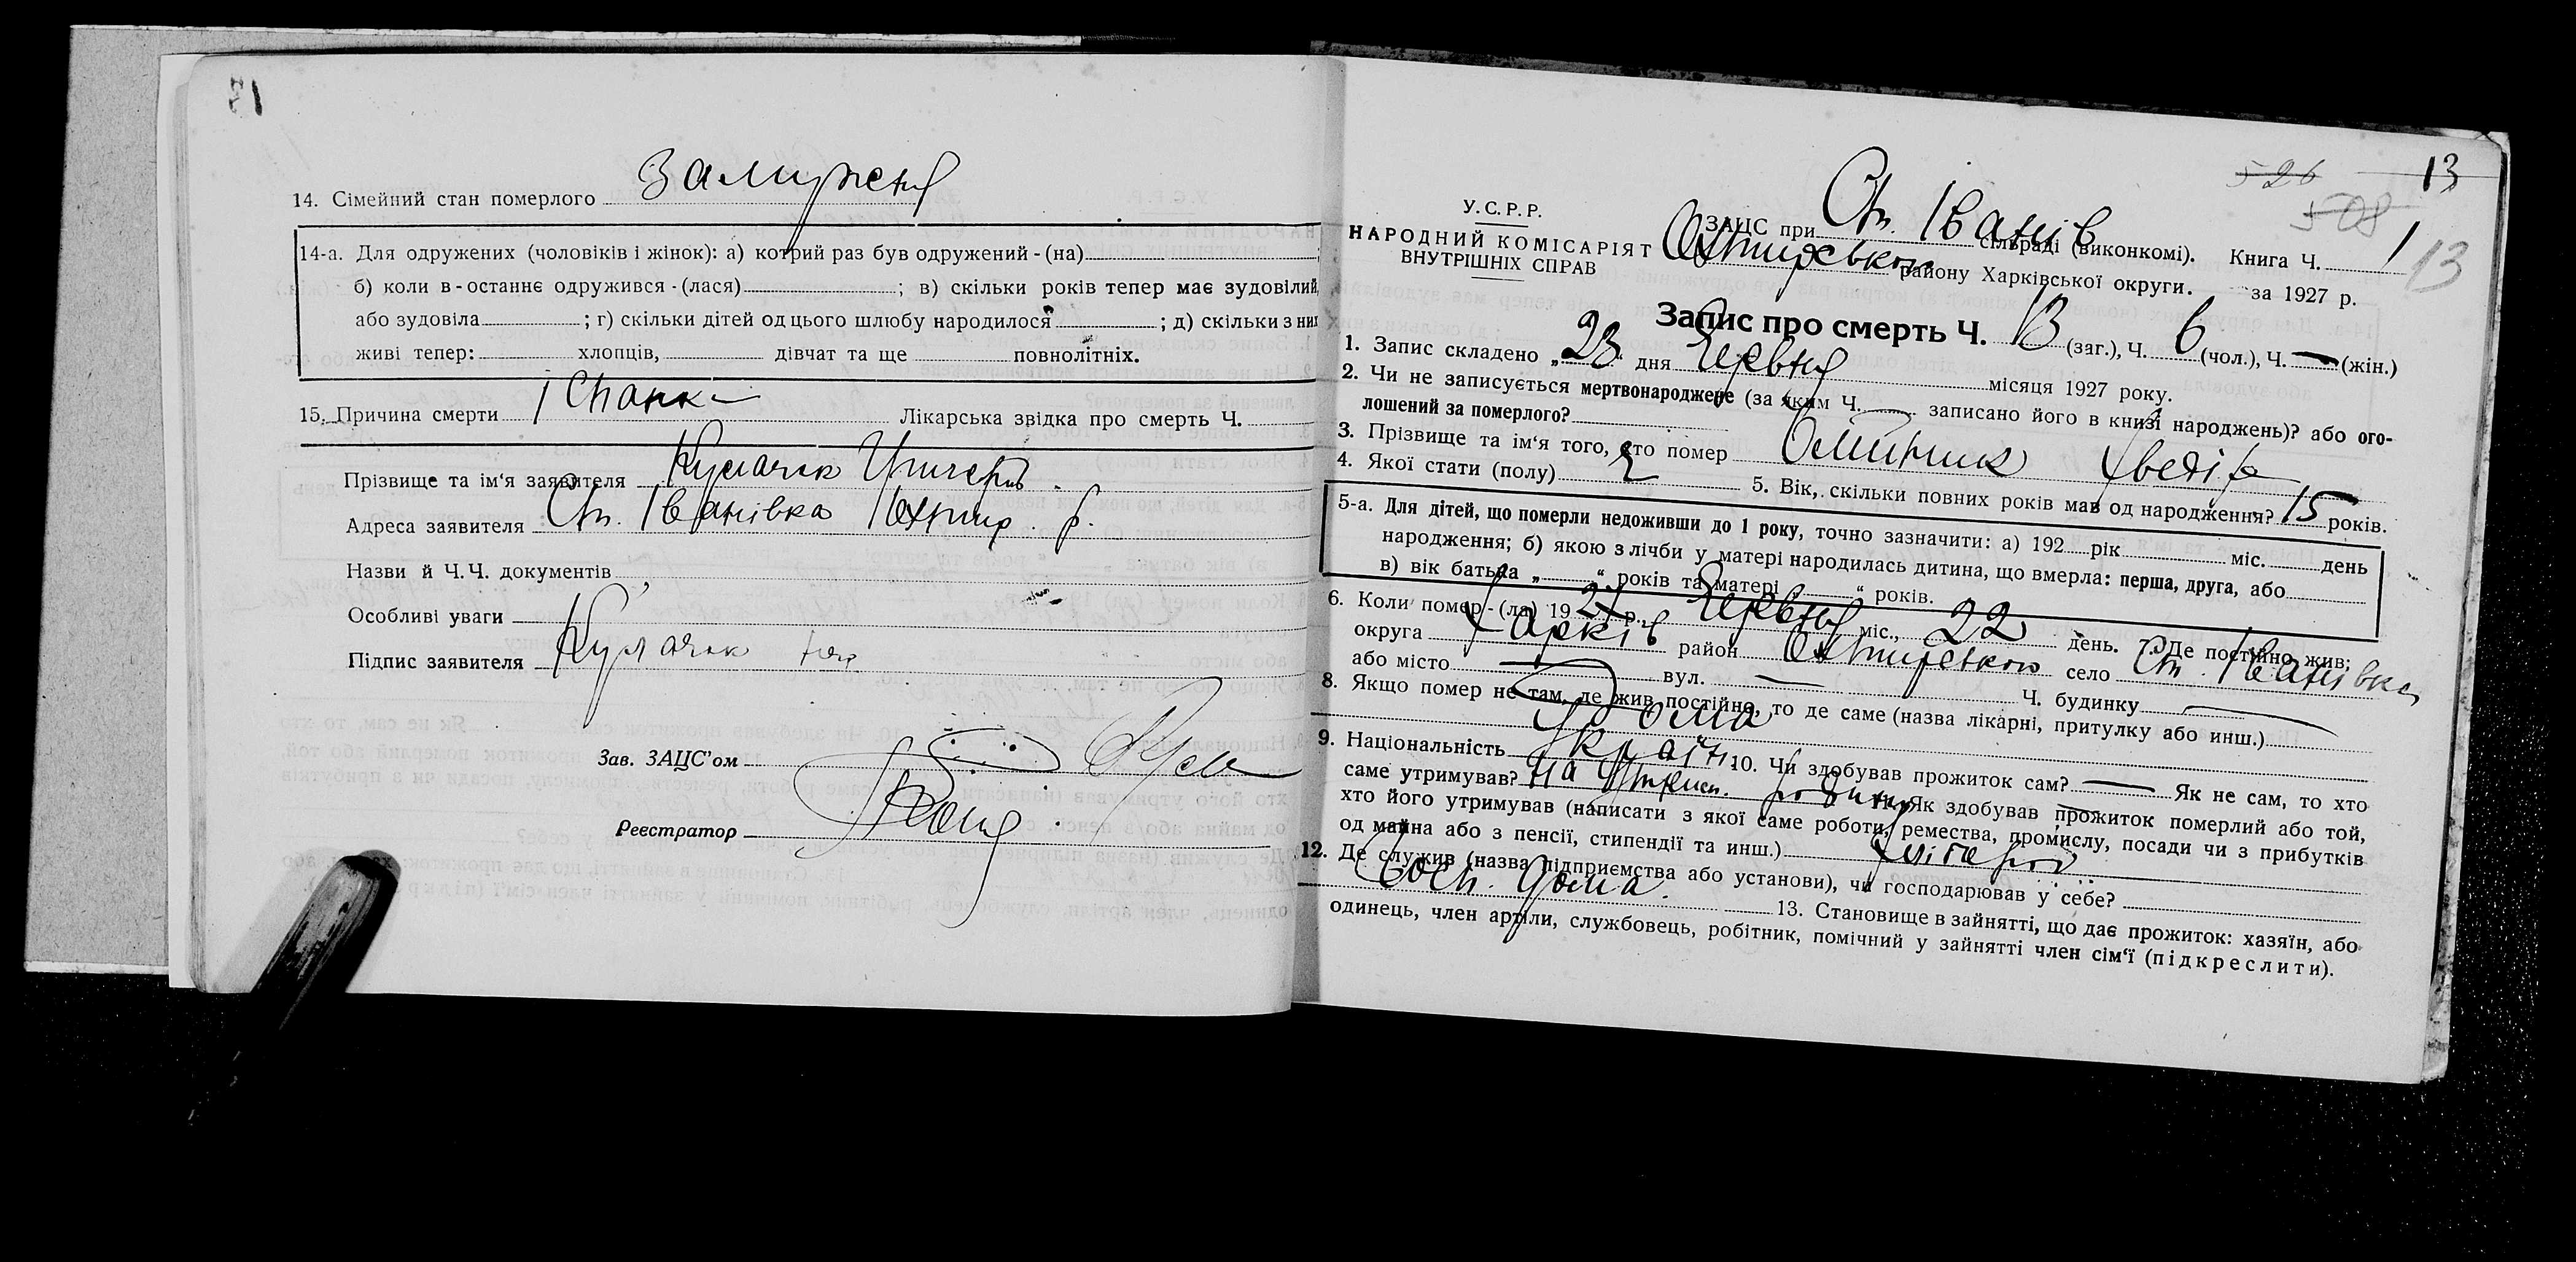 14. Сімейний стан померлого Замужня
14-а. Для одружених (чоловіків і жінок): а) котрий раз був одружений - (на) ;
б) коли в-останнє одружився-(лася) ; в) скільки років тепер має зудовілий,
або зудовіла ; г) скільки дітей од цього шлюбу народилося ; д) скільки з них
живі тепер: хлопців, дівчат та ще повнолітніх.
15. Причина смерти Лікарська звідка про смерть Ч.
Прізвище та ім'я заявителя
Адреса заявителя Ст. Іванівка Охтир. р.
Назви й Ч.Ч. документів
Особливі уваги
Підпис заявителя
Зав. ЗАЦС'ом
Реєстратор
13
526
508
У.С.Р.Р.
НАРОДНИЙ КОМІСАРІЯТ
ВНУТРІШНІХ СПРАВ
ЗАЦС при Ст. Іванів сільраді (виконкомі). Книга Ч. 1
13
Охтирського району Харківської округи. за 1927 р.
Запис про смерть Ч. 13 (заг.), Ч. 6 (чол.), Ч. — (жін.)
1. Запис складено „23“ дня Червня місяця 1927 року.
2. Чи не записується мертвонароджене (за яким Ч. записано його в книзі народжень)? або ого-
лошений за померлого?
3. Прізвище та ім'я того, хто помер
4. Якої стати (полу) ч 5. Вік, скільки повних років мав од народження? 15 років.
5-а. Для дітей, що померли недоживши до 1 року, точно зазначити: а) 192 рік міс. день
народження; б) якою з лічби у матері народилась дитина, що вмерла: перша, друга, або
в) вік батька „ “ років та матері „ “ років.
6. Коли помер-(ла) 1927 р., Червня міс., 22 день. 7. Де постійно жив;
округа Харків район Охтирського село Ст. Іванівка
або місто — вул. — Ч. будинку —
8. Якщо помер не там, де жив постійно, то де саме (назва лікарні, притулку або инш.)
Дома
9. Національність Україн. 10. Чи здобував прожиток сам? — Як не сам, то хто
саме утримував? на утрим. родини 11. Як здобував прожиток померлий або той,
хто його утримував (написати з якої саме роботи, ремества, промислу, посади чи з прибутків
од майна або з пенсії, стипендії та инш.) хлібороб
12. Де служив (назва підприємства або установи), чи господарював у себе?
Госп. дома. 13. Становище в зайнятті, що дає прожиток: хазяїн, або
одинець, член артіли, службовець, робітник, помічний у зайнятті член сім'ї (підкреслити).